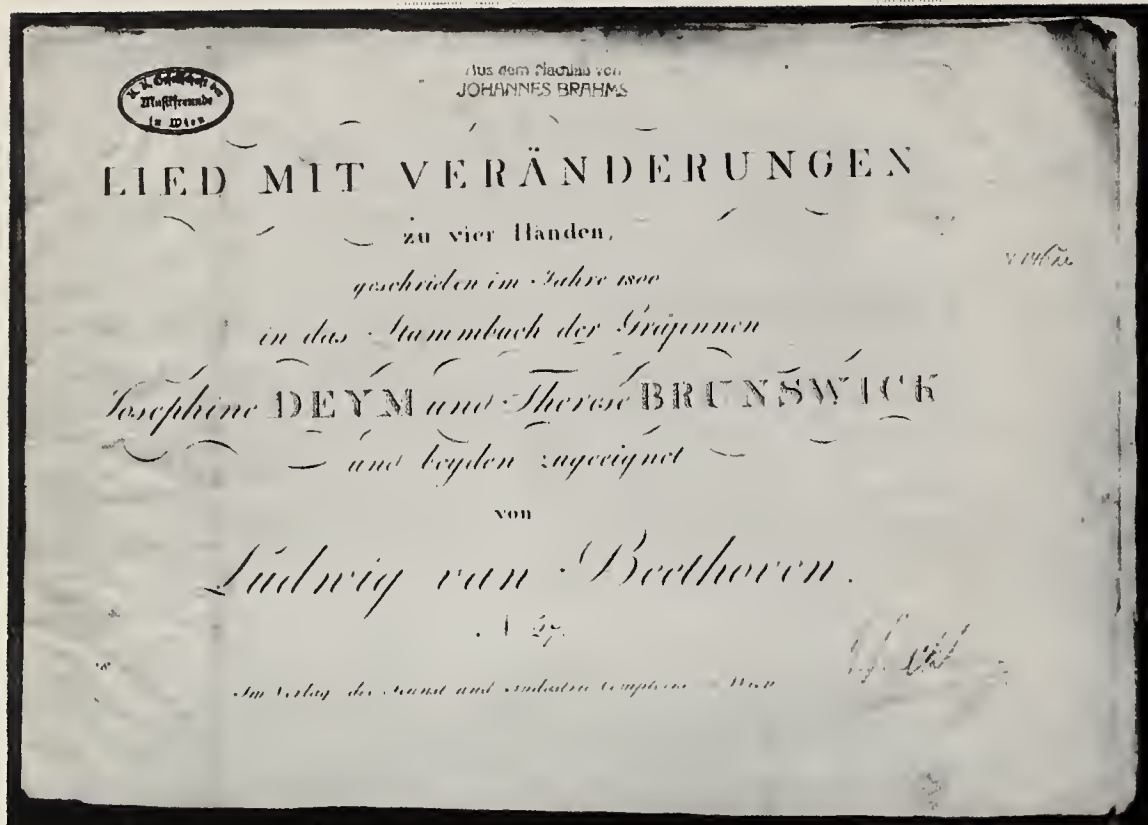 K. K. Gesellschaft der
Musikfreunde
in Wien
Aus dem Nachlaß von
JOHANNES BRAHMS
LIED MIT VERÄNDERUNGEN
zu vier Händen,
geschrieben im Jahre 1800
in das Stammbuch der Gräfinnen
Josephine DEYM und Therese BRUNSWICK
und beyden zugeeignet
von
Ludwig van Beethoven.
N 27.
Im Verlag des Kunst und Industrie Comptoirs Wien